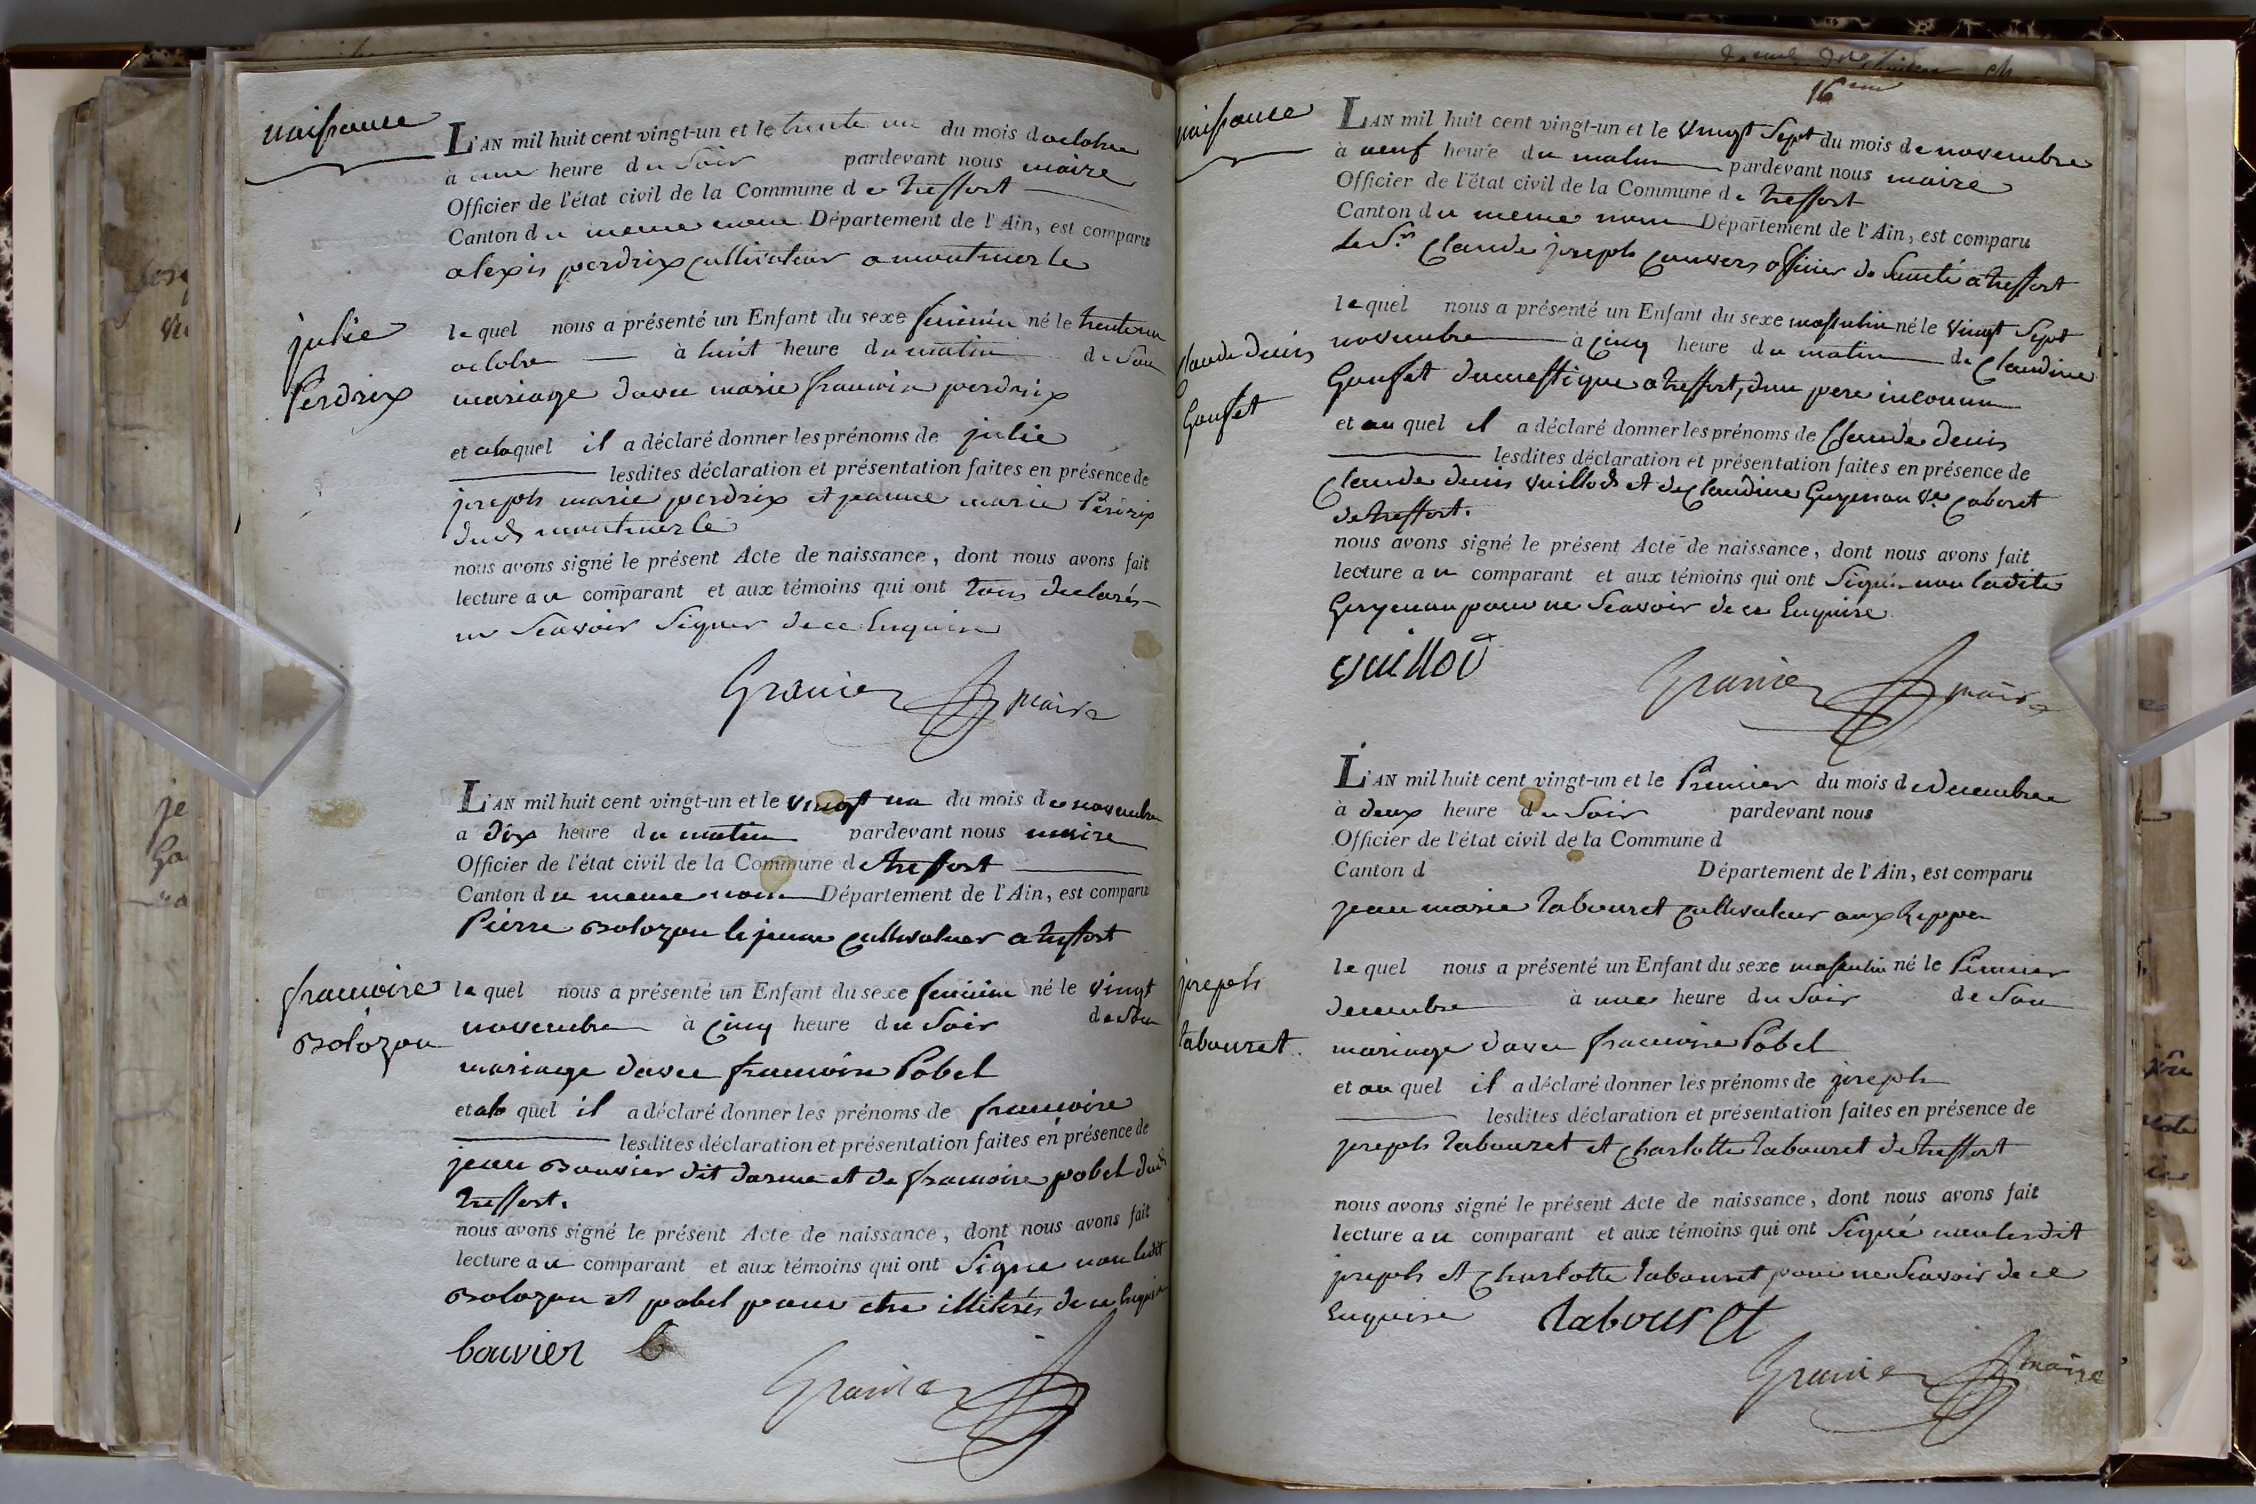 naissance
L'AN mil huit cent vingt-un et le trente un du mois doctobre
à une heure du soir pardevant nous maire
Officier de l'état civil de la Commune de treffort
Canton du meme nom Département de l'Ain, est comparu
alexis perdrix cultivateur a montmerle
julie
Perdrix
lequel nous a présenté un Enfant du sexe feminin né le trente un
octobre à huit heure du matin de son
mariage davec marie francoise perdrix
et alaquel il a déclaré donner les prénoms de julie
lesdites déclaration et présentation faites en présence de
joseph marie perdrix et jeanne marie Perdrix
dud montmerle
nous avons signé le présent Acte de naissance, dont nous avons fait
lecture au comparant et aux témoins qui ont tous declarés
ne scavoir signer de ce Enquis
Granier maire
L'AN mil huit cent vingt-un et le vingt un du mois de novembre
a dix heure du matin pardevant nous maire
Officier de l'état civil de la Commune de treffort
Canton du meme nom Département de l'Ain, est comparu
Pierre Bolozon le jeune cultivateur a treffort
francoise
Bolozon
lequel nous a présenté un Enfant du sexe feminin né le vingt
novembre à cinq heure du soir de son
mariage davec francoise Pobel
et ala quel il a déclaré donner les prénoms de francoise
lesdites déclaration et présentation faites en présence de
jean Bouvier dit darme et de francoise pobel dud
treffort.
nous avons signé le présent Acte de naissance, dont nous avons fait
lecture au comparant et aux témoins qui ont signé non ledit
Bolozon et pobel pour etre illiterés de ce Enquis
bouvier
Granier
16eme
naissance
L'AN mil huit cent vingt-un et le vingt sept du mois de novembre
à neuf heure du matin pardevant nous maire
Officier de l'état civil de la Commune de treffort
Canton du meme nom Département de l'Ain, est comparu
le Sr Claude joseph Convers officier de Santé a treffort
Claude denis
Gonset
lequel nous a présenté un Enfant du sexe masculin né le vingt sept
novembre à cinq heure du matin de Claudine
Gonset domestique a treffort, dun pere inconnu
et au quel il a déclaré donner les prénoms de Claude denis
lesdites déclaration et présentation faites en présence de
Claude denis Vuillod et de Claudine Guyenau Ve Caboret
de treffort.
nous avons signé le présent Acte de naissance, dont nous avons fait
lecture au comparant et aux témoins qui ont signé non ladite
Guyenau pour ne scavoir de ce Enquise
vuillod
Granier maire
L'AN mil huit cent vingt-un et le Premier du mois de decembre
à deux heure du soir pardevant nous
Officier de l'état civil de la Commune d
Canton d Département de l'Ain, est comparu
jean marie tabouret cultivateur aux
joseph
tabouret.
lequel nous a présenté un Enfant du sexe masculin né le Premier
decembre à une heure du soir de son
mariage davec francoise Pobel
et au quel il a déclaré donner les prénoms de joseph
lesdites déclaration et présentation faites en présence de
joseph tabouret et Charlotte tabouret de treffort
nous avons signé le présent Acte de naissance, dont nous avons fait
lecture au comparant et aux témoins qui ont signé non lesdit
joseph et Charlotte tabouret pour ne scavoir de ce
Enquise
tabouret
Granier maire